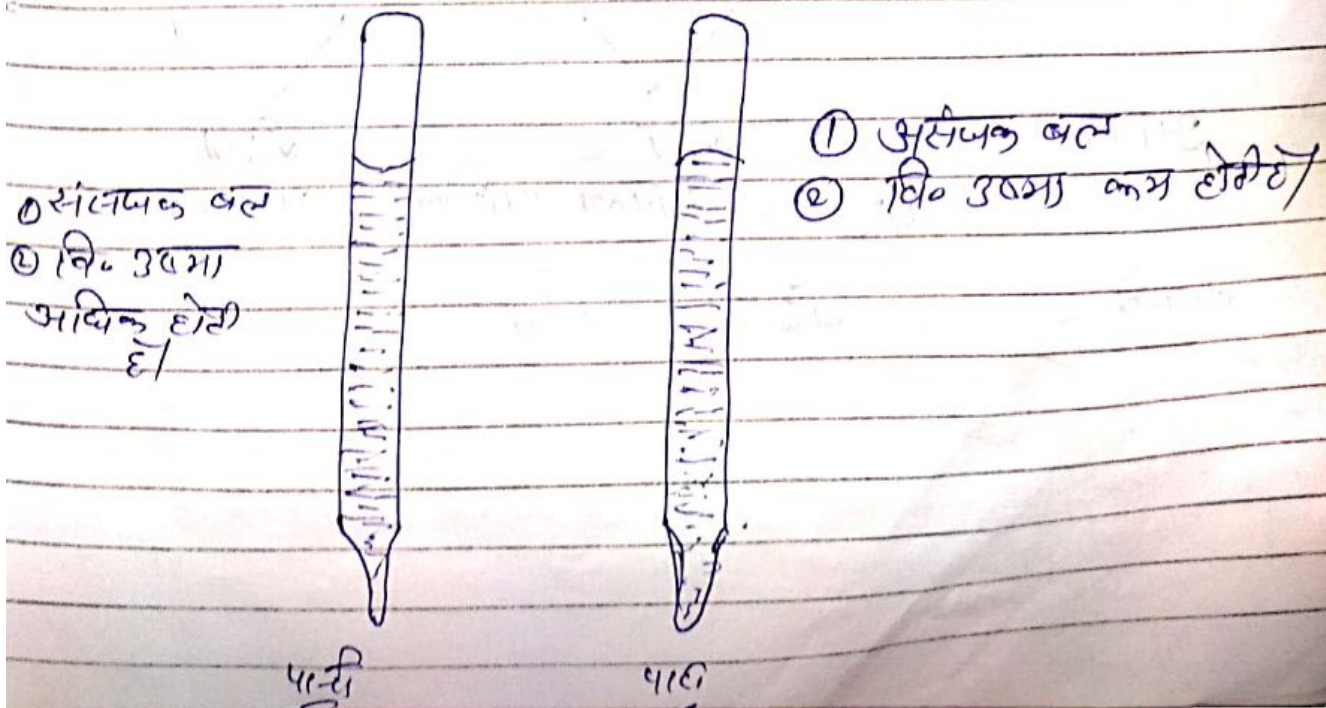 ① संलंजक बल
② वि॰ उष्मा
अधिक होती
है।
① असंजक बल
② वि॰ उष्मा कम होती है।
पानी
पारा